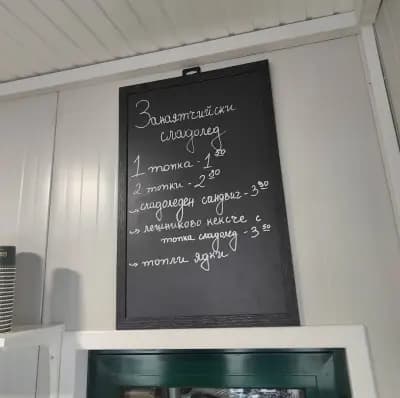 Занаятчийски
сладолед
1 топка - 1⁵⁰
2 топки - 2⁵⁰
→ сладоледен сандвич - 3⁵⁰
→ лешниково кексче с
топка сладолед - 3⁵⁰
→ топли ядки